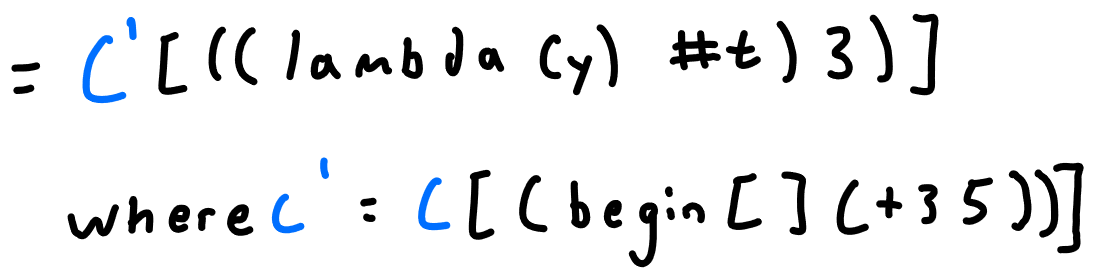 = C'[((lambda (y) #t) 3)]
where C' = C[(begin [] (+ 3 5))]